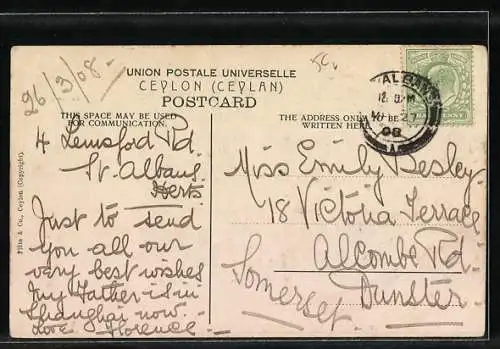 26/3/08.
UNION POSTALE UNIVERSELLE
CEYLON (CEYLAN)
POSTCARD
THIS SPACE MAY BE USED
FOR COMMUNICATION.
THE ADDRESS ONLY TO BE
WRITTEN HERE.
ALBANS
08
4 Lemsford Rd.
St. Albans.
Herts
Just to send
you all our
very best wishes
My Father is in
Shanghai now.
Love Florence
Miss Emily Besley.
18 Victoria Terrace
Alcombe Rd.
Dunster
Somerset.
Plâté & Co., Ceylon (Copyright).